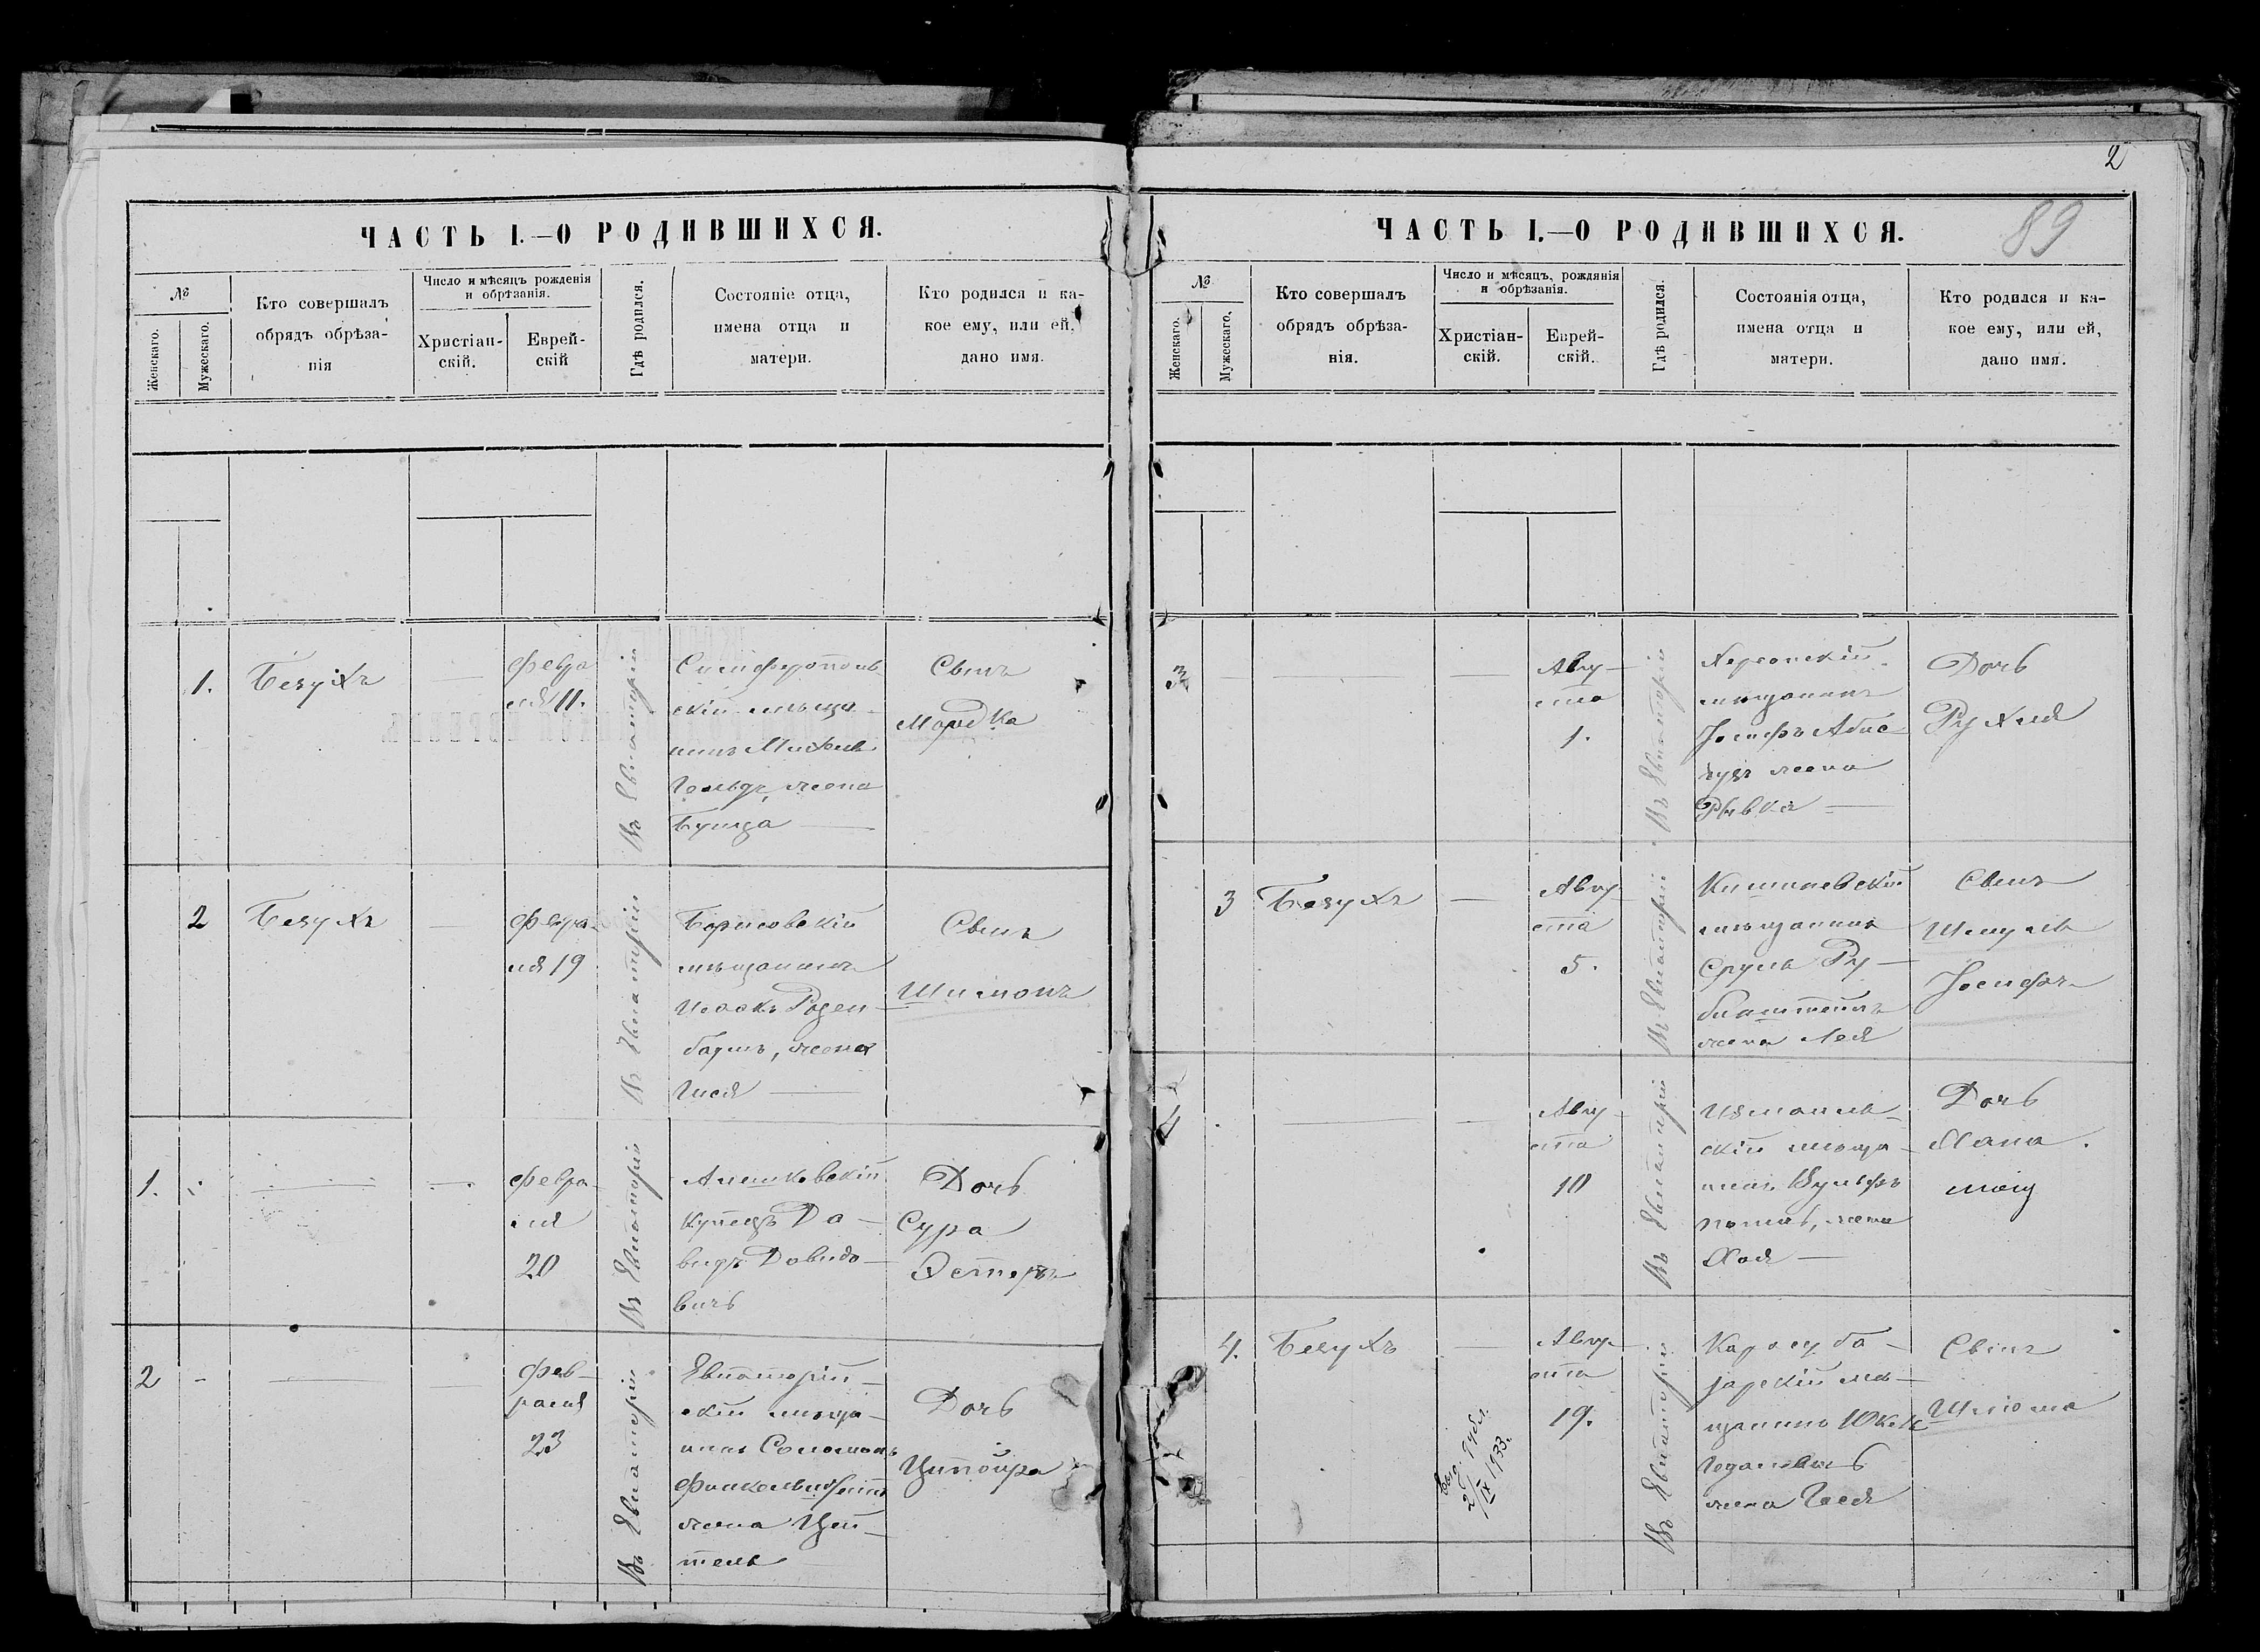 ЧАСТЬ I.—О РОДИВШИХСЯ.
№
Женскаго.
Мужескаго.
Кто совершалъ
обрядъ обрѣза-
нія
Число и мѣсяцъ рожденія
и обрѣзанія.
Христіан-
скій.
Еврей-
скій
Гдѣ родился.
Состояніе отца,
имена отца и
матери.
Кто родился и ка-
кое ему, или ей,
дано имя.
1.
Безухъ
—
февра
ля 11.
Въ Евпаторіи
Симферополь
скій мѣща-
нинъ Михель
Гольдъ, жена
Бунца —
Сынъ
Мордка
2
Безухъ
—
февра-
ля 19
Въ Евпаторіи
Борисовскій
мѣщанинъ
Исаакъ Розен-
баумъ, жена
Гися —
Сынъ
Шимонъ
1.
—
—
февра-
ля
20
Въ Евпаторіи
Алешковскій
купецъ Да-
видъ Давидо-
вичъ
Дочь
Сура
Эстеръ
2
-
—
—
фев-
раля
23
Въ Евпаторіи
Евпаторій-
скій мѣща-
нинъ Соломонъ
жена Цей-
тель
Дочь
Ципойра
2
89
ЧАСТЬ I.—О РОДИВШИХСЯ.
№.
Женскаго.
Мужескаго,
Кто совершалъ
обрядъ обрѣза-
нія.
Число и мѣсяцъ, рождянія
и обрѣзанія.
Христіан-
скій.
Еврей-
скій.
Гдѣ родился.
Состоянія отца,
имена отца и
матери.
Кто родился и ка-
кое ему, или ей,
дано имя.
3
-
—
—
Авгу-
ста
1.
Въ Евпаторіи
Херсонскій
мѣщанинъ
Іосифъ
жена
Рывка —
Дочь
Рухля
3
Безухъ
—
Авгу-
ста
5.
Въ Евпаторіи
Кишиневскій
мѣщанинъ
Сруль Ру-
бинштейнъ
жена Лея
Сынъ
Шмуль
Іосифъ
4
—
—
Авгу-
ста
10
Въ Евпаторіи
Измаиль-
скій мѣща-
нинъ Вульфъ
жена
Хая —
Дочь
Хана.
4.
Безухъ
—
Авгу-
ста
19.
Въ Евпаторіи
Карасуба-
зарскій мѣ-
щанинъ
жена Гися
Сынъ
Шлёма
2/IX 1933.